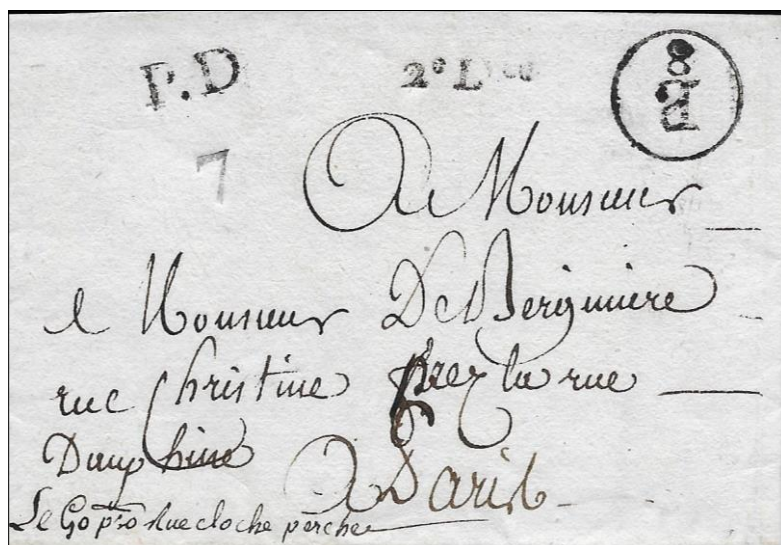 P.D
2e L
7
8
B
A Monsieur
Monsieur De Bergmiere
rue Christine prez la rue
Dauphine
A Paris
Le Go pro Rue cloche perche